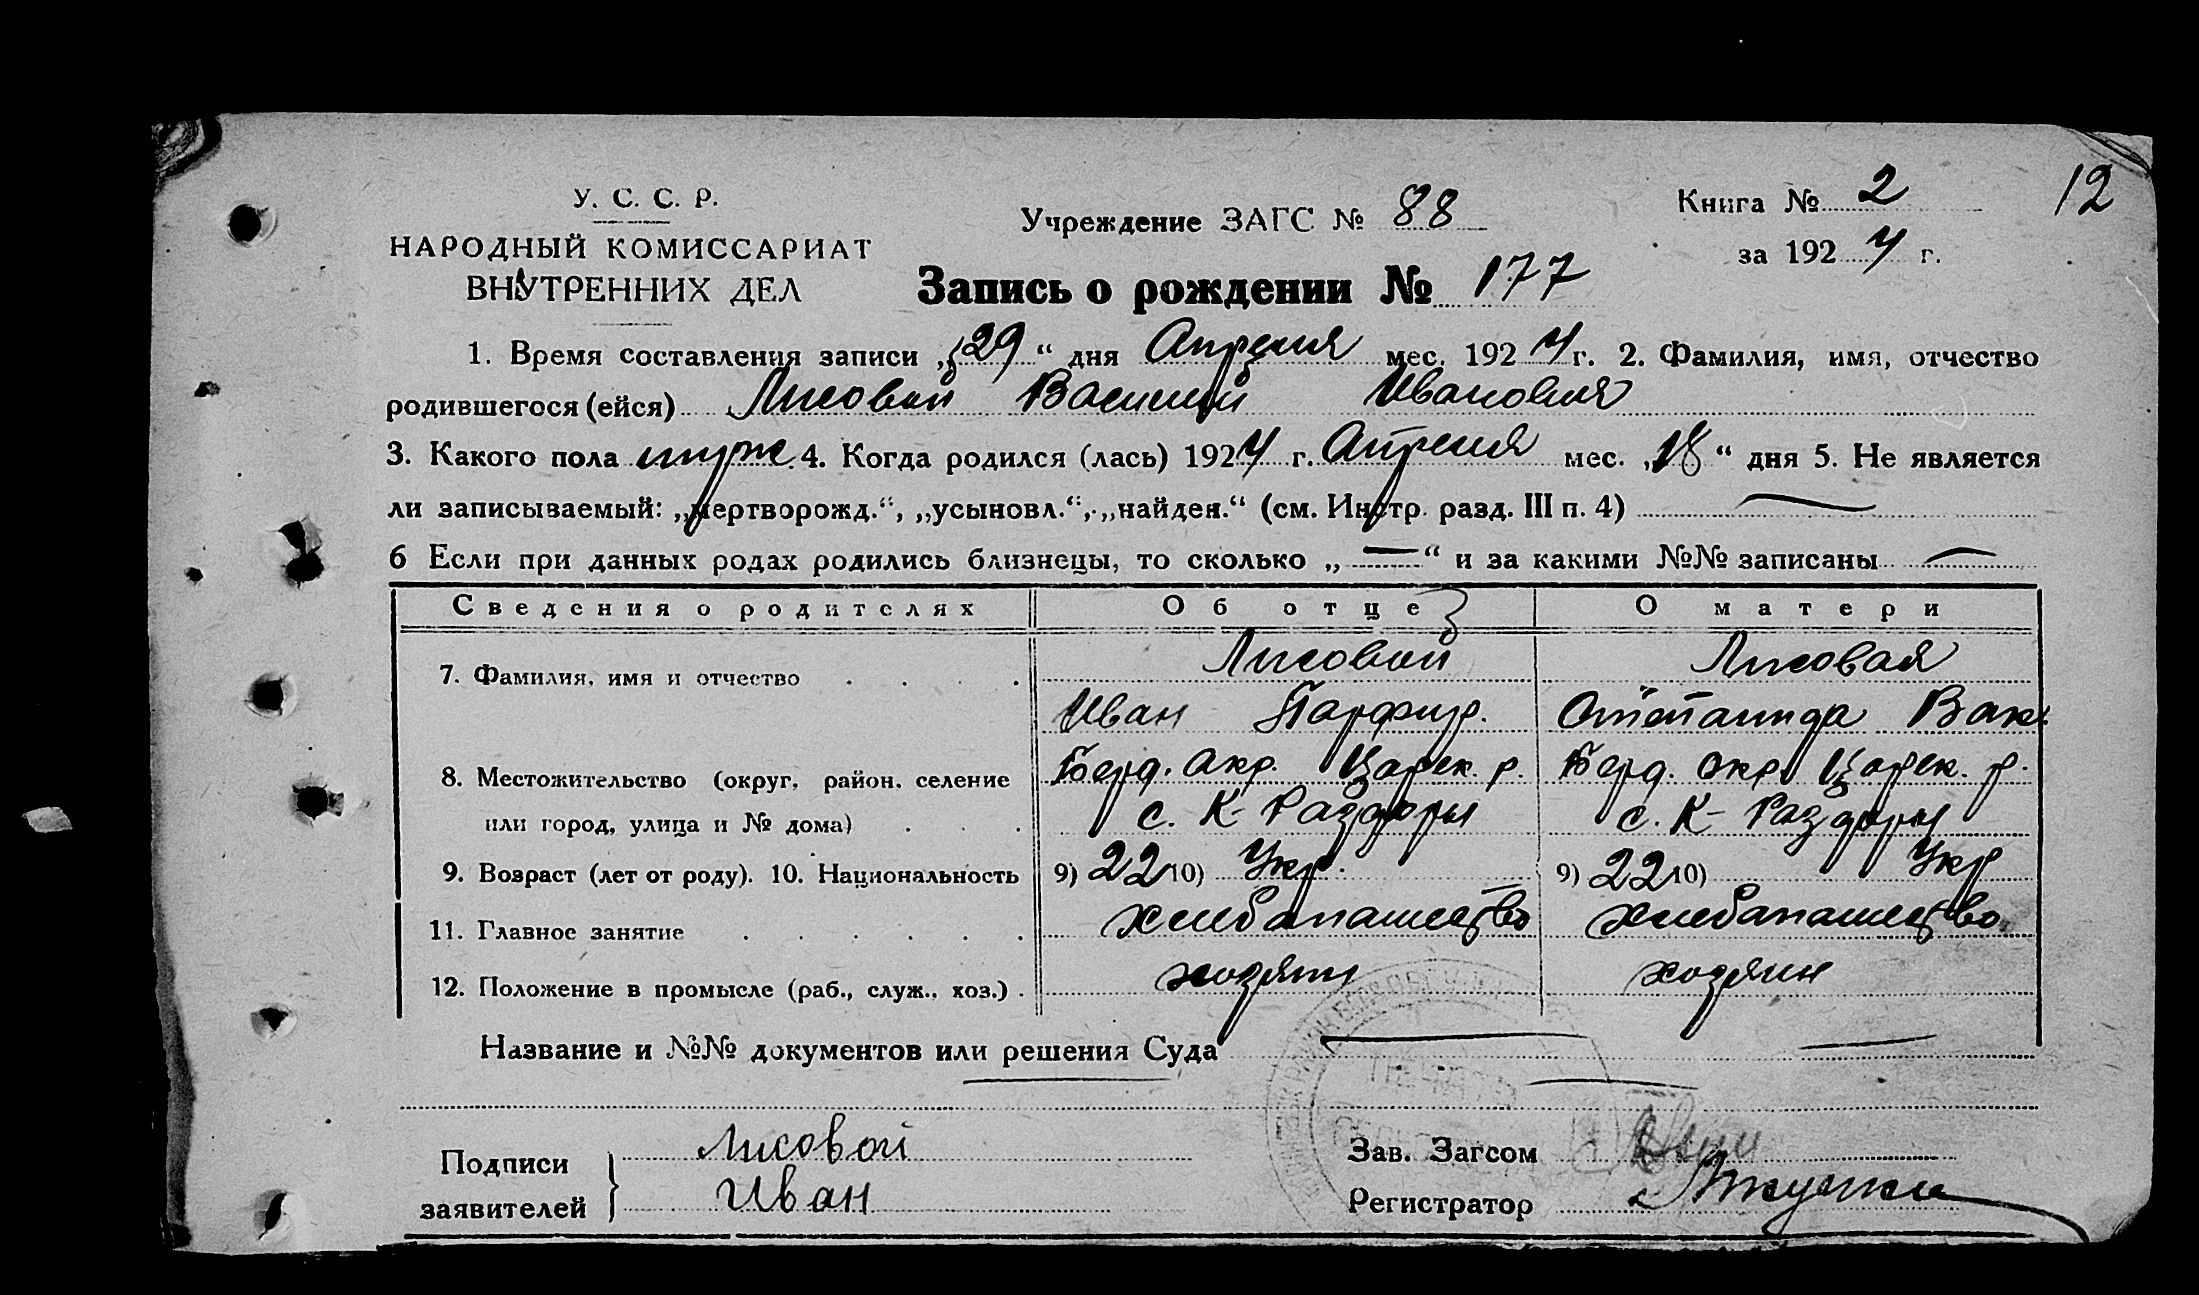 У. С. С. Р.
НАРОДНЫЙ КОМИССАРИАТ
ВНУТРЕННИХ ДЕЛ
Учреждение ЗАГС № 88
Книга № 2
12
за 1924 г.
Запись о рождении № 177
1. Время составления записи „29“ дня Апреля мес. 1924 г. 2. Фамилия, имя, отчество
родившегося (ейся) Лисовой Василий Иванович
3. Какого пола муж. 4. Когда родился (лась) 1924 г. Апреля мес. „18“ дня 5. Не является
ли записываемый: „мертворожд.“, „усыновл.“, „найден.“ (см. Инстр. разд. III п. 4) —
6 Если при данных родах родились близнецы, то сколько „—“ и за какими №№ записаны —
Сведения о родителях Об отце О матери
7. Фамилия, имя и отчество Лисовой Лисовая
Иван Парфир. Степанида Вак.
8. Местожительство (округ, район, селение Берд. окр. Царек. р. Берд. окр. Царек. р.
или город, улица и № дома) с. К-Раздоры с. К-Раздоры
9. Возраст (лет от роду). 10. Национальность 9) 22 10) Укр. 9) 22 10) Укр
11. Главное занятие хлебопашество хлебопашество
12. Положение в промысле (раб., служ., хоз.) хозяин хозяин
Название и №№ документов или решения Суда
Подписи
заявителей
Лисовой
Иван
Зав. Загсом
Регистратор